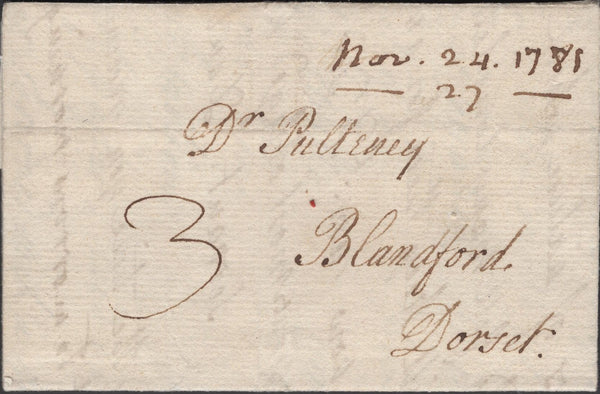 Nov. 24. 1781
— 27 —
Dr Pulteney
3
Blandford.
Dorset.